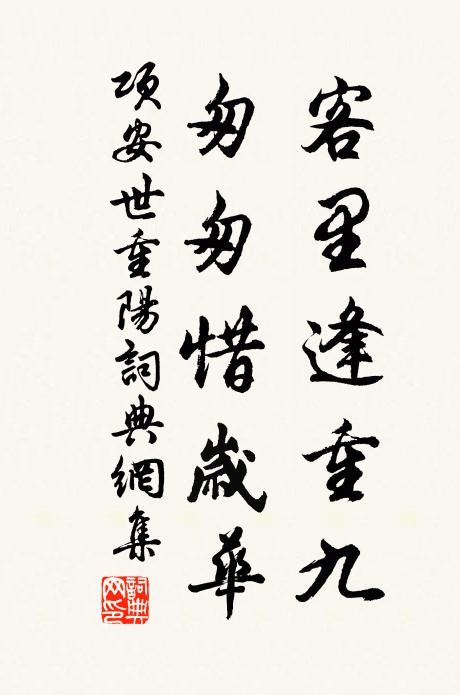 客里逢重九
匆匆惜歲華
項安世重陽詞典網集
詞典網印